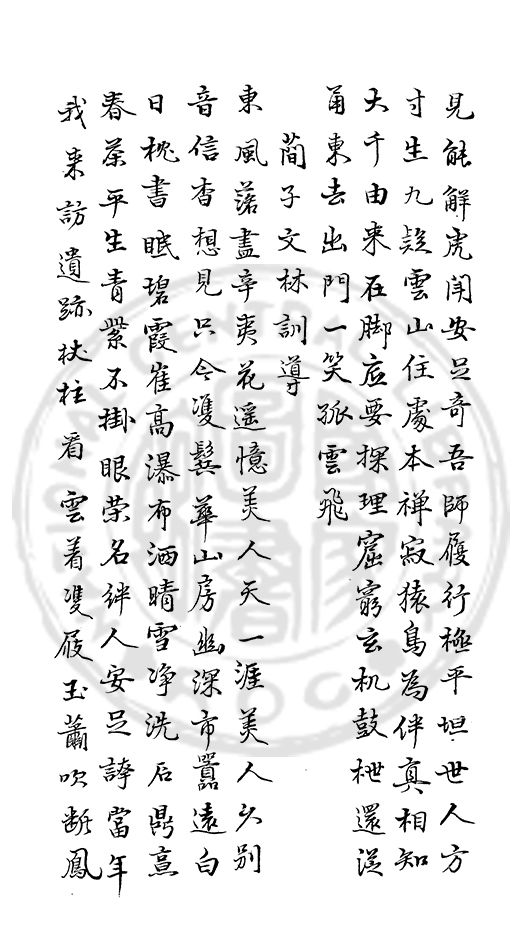 見能解虎閗安足奇吾師履行極平坦世人方
寸生九疑雲山住處本禅寂猿鳥為伴真相知
大千由来在脚底要探理窟窮玄机鼓枻還従
甬東去出門一笑孤雲飛
蕳子文林訓導
東風落盡辛夷花遥憶美人天一涯美人久别
音信杳想見只今雙鬓華山房幽深市囂遠白
日枕書眠碧霞崔高瀑布洒晴雪净洗石鼎烹
春茶平生青紫不掛眼荣名絆人安足誇當年
我来訪遺跡杖拄看雲着雙屐玉蕭吹斷鳳